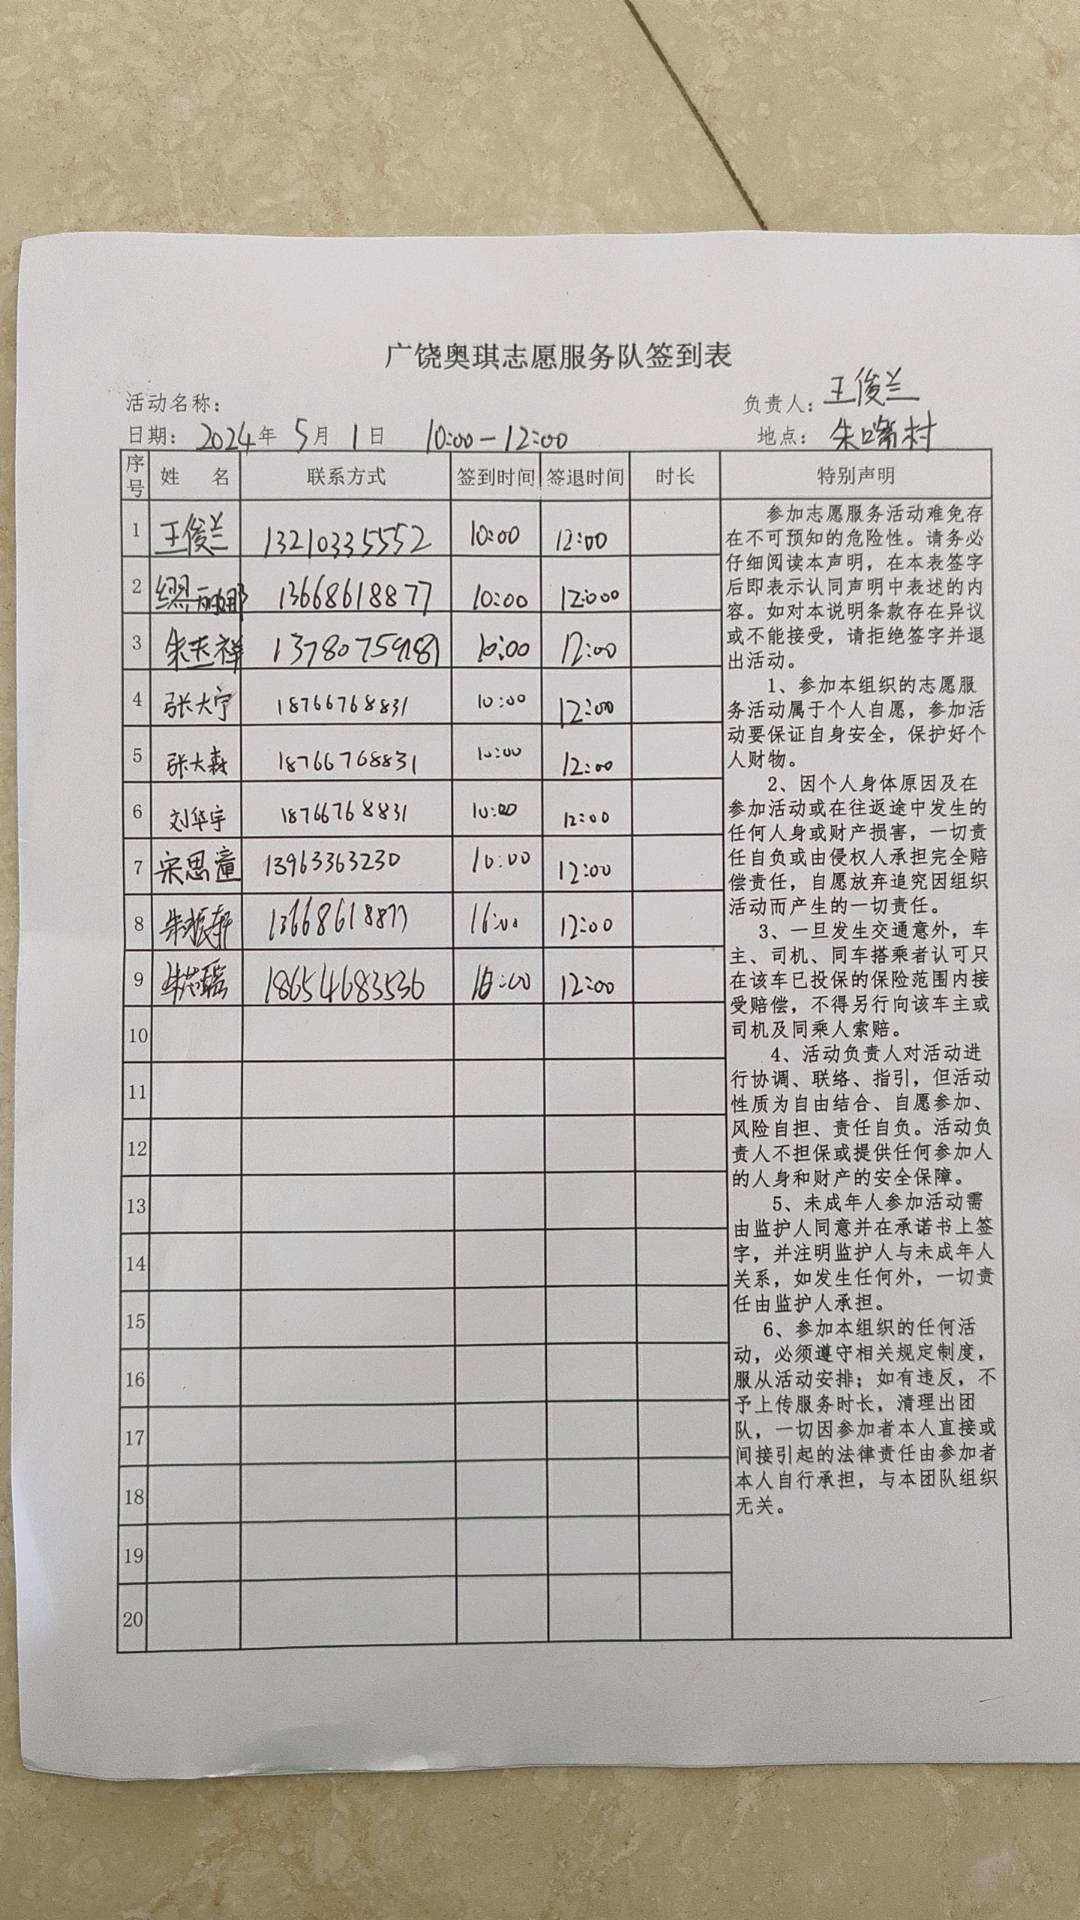 广饶奥琪志愿服务队签到表
活动名称： 负责人：王俊兰
日期：2024年5月1日 10:00-12:00 地点：朱嘴村
序号 姓名 联系方式 签到时间 签退时间 时长 特别声明
1 王俊兰 13210335552 10:00 12:00
2 缪丽娜 13668618877 10:00 12:00
3 朱志祥 10:00 12:00
4 张大宁 18766768831 10:00 12:00
5 张大森 18766768831 10:00 12:00
6 刘华宇 18766768831 10:00 12:00
7 宋思童 13963363230 10:00 12:00
8 朱振轩 13668618877 10:00 12:00
9 18654683536 10:00 12:00
10
11
12
13
14
15
16
17
18
19
20
参加志愿服务活动难免存
在不可预知的危险性。请务必
仔细阅读本声明，在本表签字
后即表示认同声明中表述的内
容。如对本说明条款存在异议
或不能接受，请拒绝签字并退
出活动。
1、参加本组织的志愿服
务活动属于个人自愿，参加活
动要保证自身安全，保护好个
人财物。
2、因个人身体原因及在
参加活动或在往返途中发生的
任何人身或财产损害，一切责
任自负或由侵权人承担完全赔
偿责任，自愿放弃追究因组织
活动而产生的一切责任。
3、一旦发生交通意外，车
主、司机、同车搭乘者认可只
在该车已投保的保险范围内接
受赔偿，不得另行向该车主或
司机及同乘人索赔。
4、活动负责人对活动进
行协调、联络、指引，但活动
性质为自由结合、自愿参加、
风险自担、责任自负。活动负
责人不担保或提供任何参加人
的人身和财产的安全保障。
5、未成年人参加活动需
由监护人同意并在承诺书上签
字，并注明监护人与未成年人
关系，如发生任何外，一切责
任由监护人承担。
6、参加本组织的任何活
动，必须遵守相关规定制度，
服从活动安排；如有违反，不
予上传服务时长，清理出团
队，一切因参加者本人直接或
间接引起的法律责任由参加者
本人自行承担，与本团队组织
无关。